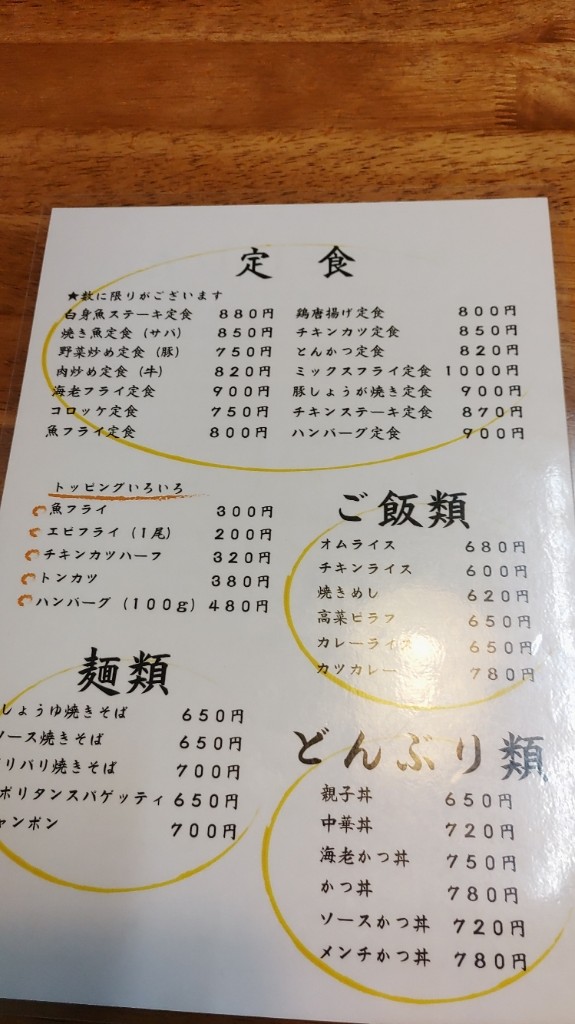 定食
★数に限りがございます
白身魚ステーキ定食 880円
焼き魚定食（サバ） 850円
野菜炒め定食（豚） 750円
肉炒め定食（牛） 820円
海老フライ定食 900円
コロッケ定食 750円
魚フライ定食 800円
鶏唐揚げ定食 800円
チキンカツ定食 850円
とんかつ定食 820円
ミックスフライ定食 1000円
豚しょうが焼き定食 900円
チキンステーキ定食 870円
ハンバーグ定食 900円
トッピングいろいろ
魚フライ 300円
エビフライ（1尾） 200円
チキンカツハーフ 320円
トンカツ 380円
ハンバーグ（100g） 480円
ご飯類
オムライス 680円
チキンライス 600円
焼きめし 620円
高菜ピラフ 650円
カレーライス 650円
カツカレー 780円
麺類
しょうゆ焼きそば 650円
ソース焼きそば 650円
リバリ焼きそば 700円
ポリタンスパゲッティ 650円
ャンポン 700円
どんぶり類
親子丼 650円
中華丼 720円
海老かつ丼 750円
かつ丼 780円
ソースかつ丼 720円
メンチかつ丼 780円